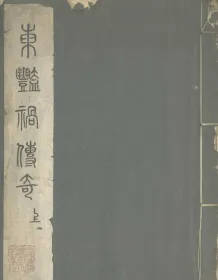 東豔禍傳奇上